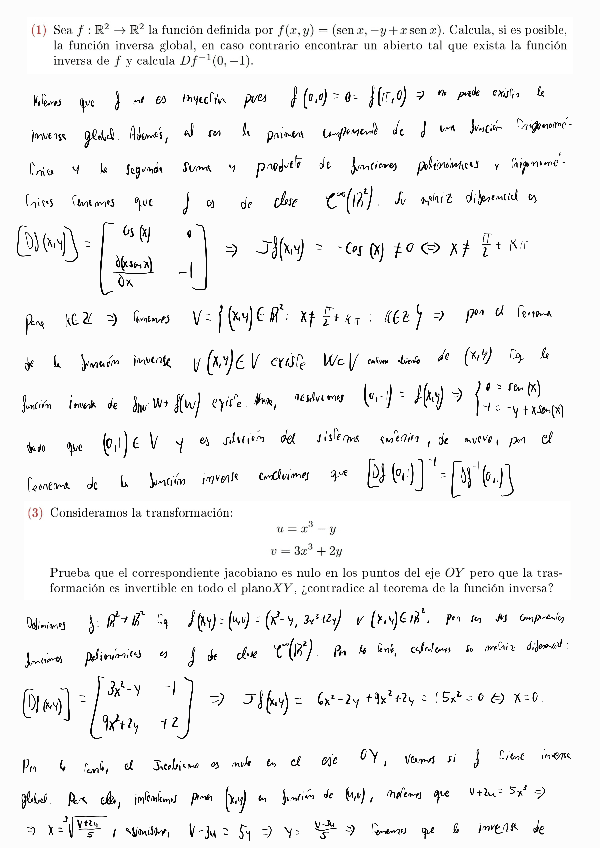 (1) Sea f : ℝ² → ℝ² la función definida por f(x, y) = (sen x, −y + x sen x). Calcula, si es posible,
la función inversa global, en caso contrario encontrar un abierto tal que exista la función
inversa de f y calcula Df⁻¹(0, −1).
Notemos que f no es inyectiva pues f(0,0) = 0 = f(π,0) ⇒ no puede existir la
inversa global. Además, al ser la primera componente de f una función trigonomé-
trica y la segunda suma y producto de funciones polinómicas y trigonomé-
tricas tenemos que f es de clase C^∞(ℝ²). Su matriz diferencial es
[Df(x,y)] = [cos(x) 0 ; ∂(x sen x)/∂x -1] ⇒ Jf(x,y) = -cos(x) ≠ 0 ⇔ x ≠ π/2 + kπ
para k∈ℤ ⇒ tenemos V = {(x,y) ∈ ℝ² : x ≠ π/2 + kπ : k∈ℤ} ⇒ por el teorema
de la función inversa ∀(x,y) ∈ V existe W⊂V entorno abierto de (x,y) tq la
función inversa de f|W: W→f(W) existe. resolvemos (0,-1) = f(x,y) ⇒ {0 = sen(x) ; -1 = -y + x sen(x)
dado que (0,1) ∈ V y es solución del sistema anterior, de nuevo, por el
teorema de la función inversa concluimos que [Df(0,1)]⁻¹ = [Df⁻¹(0,-1)]
(3) Consideramos la transformación:
u = x³ − y
v = 3x³ + 2y
Prueba que el correspondiente jacobiano es nulo en los puntos del eje OY pero que la tras-
formación es invertible en todo el planoXY, ¿contradice al teorema de la función inversa?
Definimos f: ℝ²→ℝ² tq f(x,y) = (u,v) = (x³-y, 3x³+2y) ∀(x,y)∈ℝ², por ser sus componentes
funciones polinómicas es f de clase C^∞(ℝ²). Por lo tanto, calculamos su matriz diferencial:
[Df(x,y)] = [3x²-y -1 ; 9x²+2y +2] ⇒ Jf(x,y) = 6x²-2y+9x²+2y = 15x² = 0 ⇔ x=0.
Por lo tanto, el Jacobiano es nulo en el eje OY, veamos si f tiene inversa
global. Para ello, intentemos poner (x,y) en función de (u,v), notemos que v+2u = 5x³ ⇒
⇒ x = ∛((v+2u)/5), asimismo, v-3u = 5y ⇒ y = (v-3u)/5 ⇒ tenemos que la inversa de